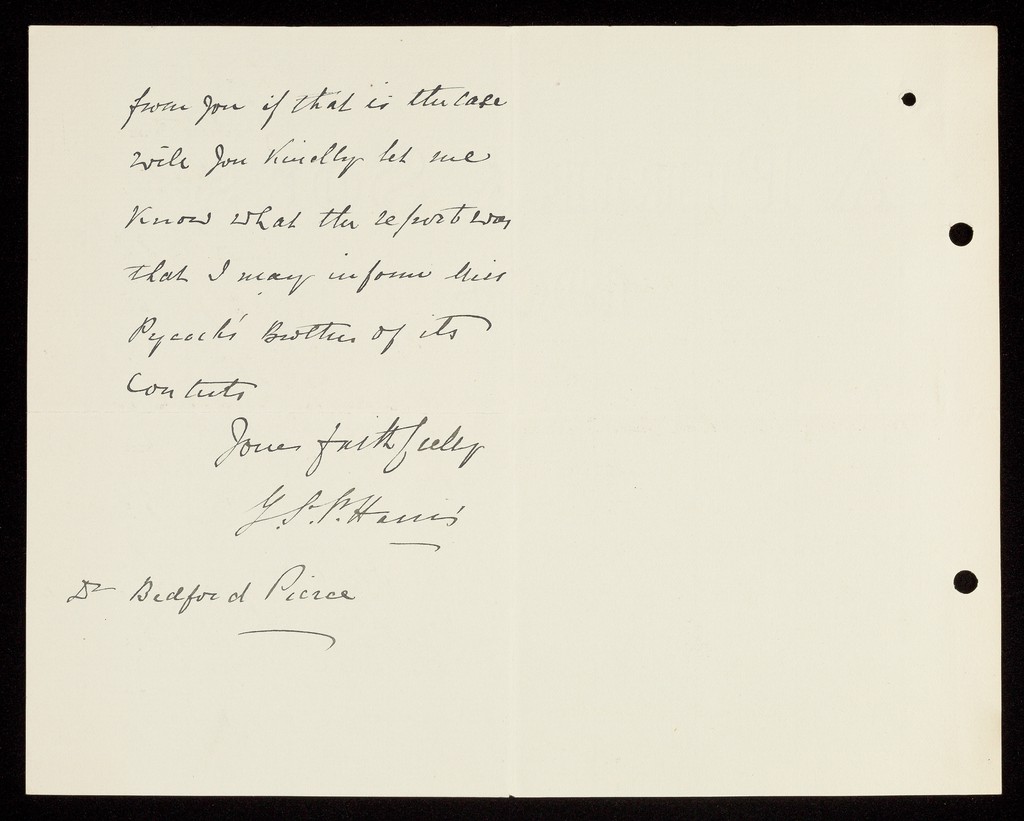 from you if that is the case
will you kindly let me
know what the report was
that I may inform Miss
Pycock's Brother of its
contents
Yours faithfully
S. P. Harris
Dr Bedford Pierce